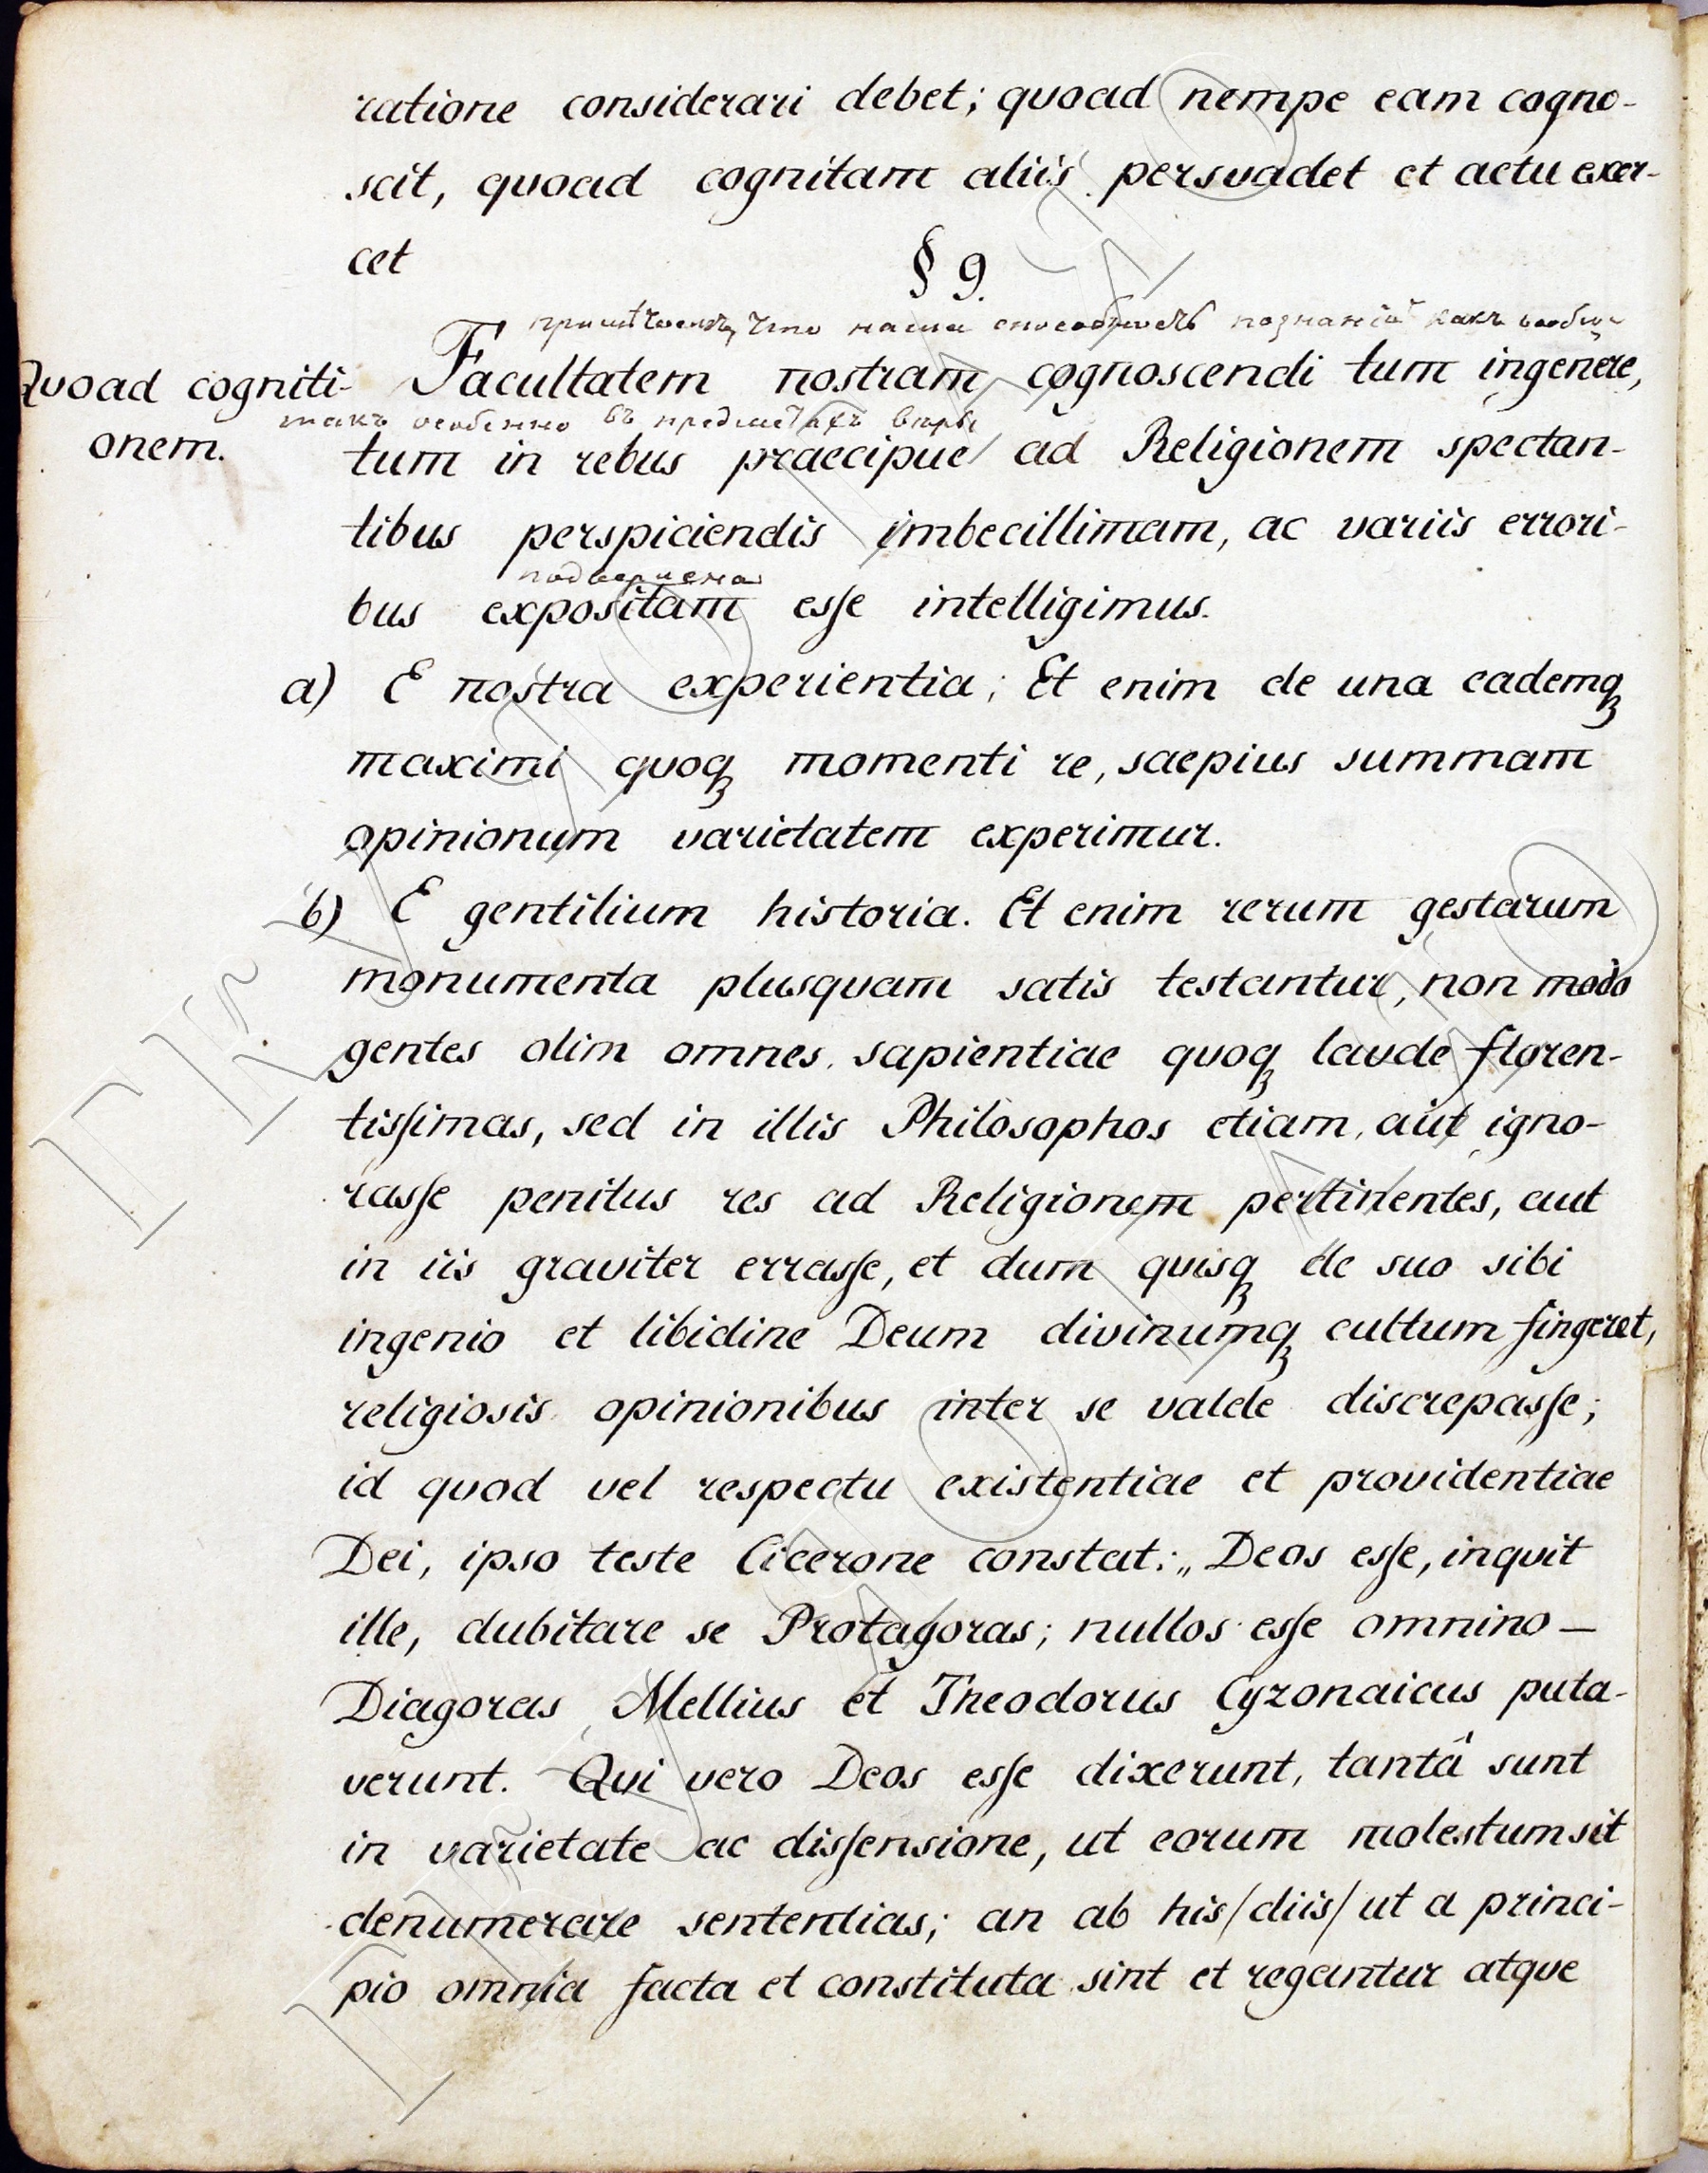 ratione considerari debet; quoad nempe eam cogno-
scit, quoad cognitam aliis persuadet et actu exer-
cet
§ 9.
что наша способность познанія какъ вообще
Quoad cogniti-
onem.
Facultatem nostram cognoscendi tum ingenere,
такъ особенно въ предметахъ вѣры
tum in rebus praecipue ad Religionem spectan-
tibus perspiciendis imbecillimam, ac variis errori-
подвержена
bus expositam esse intelligimus.
a) E nostra experientia; Et enim de una eademq
maximi quoq momenti re, saepius summam
opinionum varietatem experimur.
b) E gentilium historia. Et enim rerum gestarum
monumenta plusquam satis testantur, non modo
gentes olim omnes sapientiae quoq laude floren-
tissimas, sed in illis Philosophos etiam, aut igno-
rasse penitus res ad Religionem pertinentes, aut
in iis graviter errasse, et dum quisq de suo sibi
ingenio et libidine Deum divinumq cultum fingeret,
religiosis opinionibus inter se valde discrepasse;
id quod vel respectu existentiae et providentiae
Dei, ipso teste Cicerone constat: „Deos esse, inquit
ille, dubitare se Protagoras; nullos esse omnino —
Diagoras, Mellius et Theodorus Cyronaicus puta-
verunt. Qui vero Deos esse dixerunt, tantâ sunt
in varietate ac dissensione, ut eorum molestum sit
denumerare sententias; an ab his /diis/ ut a princi-
pio omnia facta et constituta sint et regantur atque